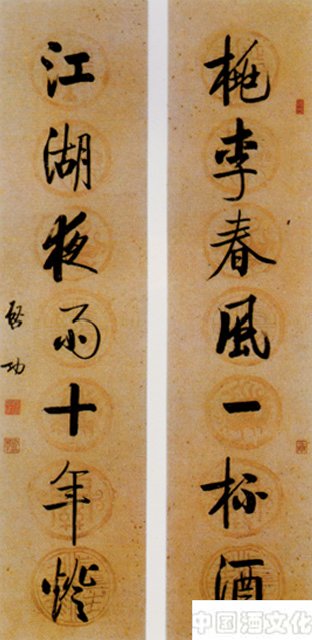 桃李春風一杯酒
江湖夜雨十年燈
啟功
中国酒文化